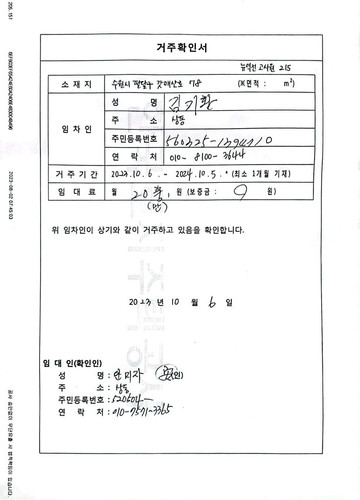 거주확인서
능력전 고시원 215
소재지 수원시 팔달구 갓매산로 78 (※면적: ㎡)
임차인
성명 김기환
주소 상동
주민등록번호 560325-1394710
연락처 010-8100-3644
거주기간 2023.10.6. - 2024.10.5. *(최소 1개월 기재)
임대료 월 20만원 (보증금: 0 원)
(만)
위 임차인이 상기와 같이 거주하고 있음을 확인합니다.
2023년 10월 6일
임대인(확인인)
성명: 안미자 (인)
주소: 상동
주민등록번호: 520504-
연락처: 010-7571-3365